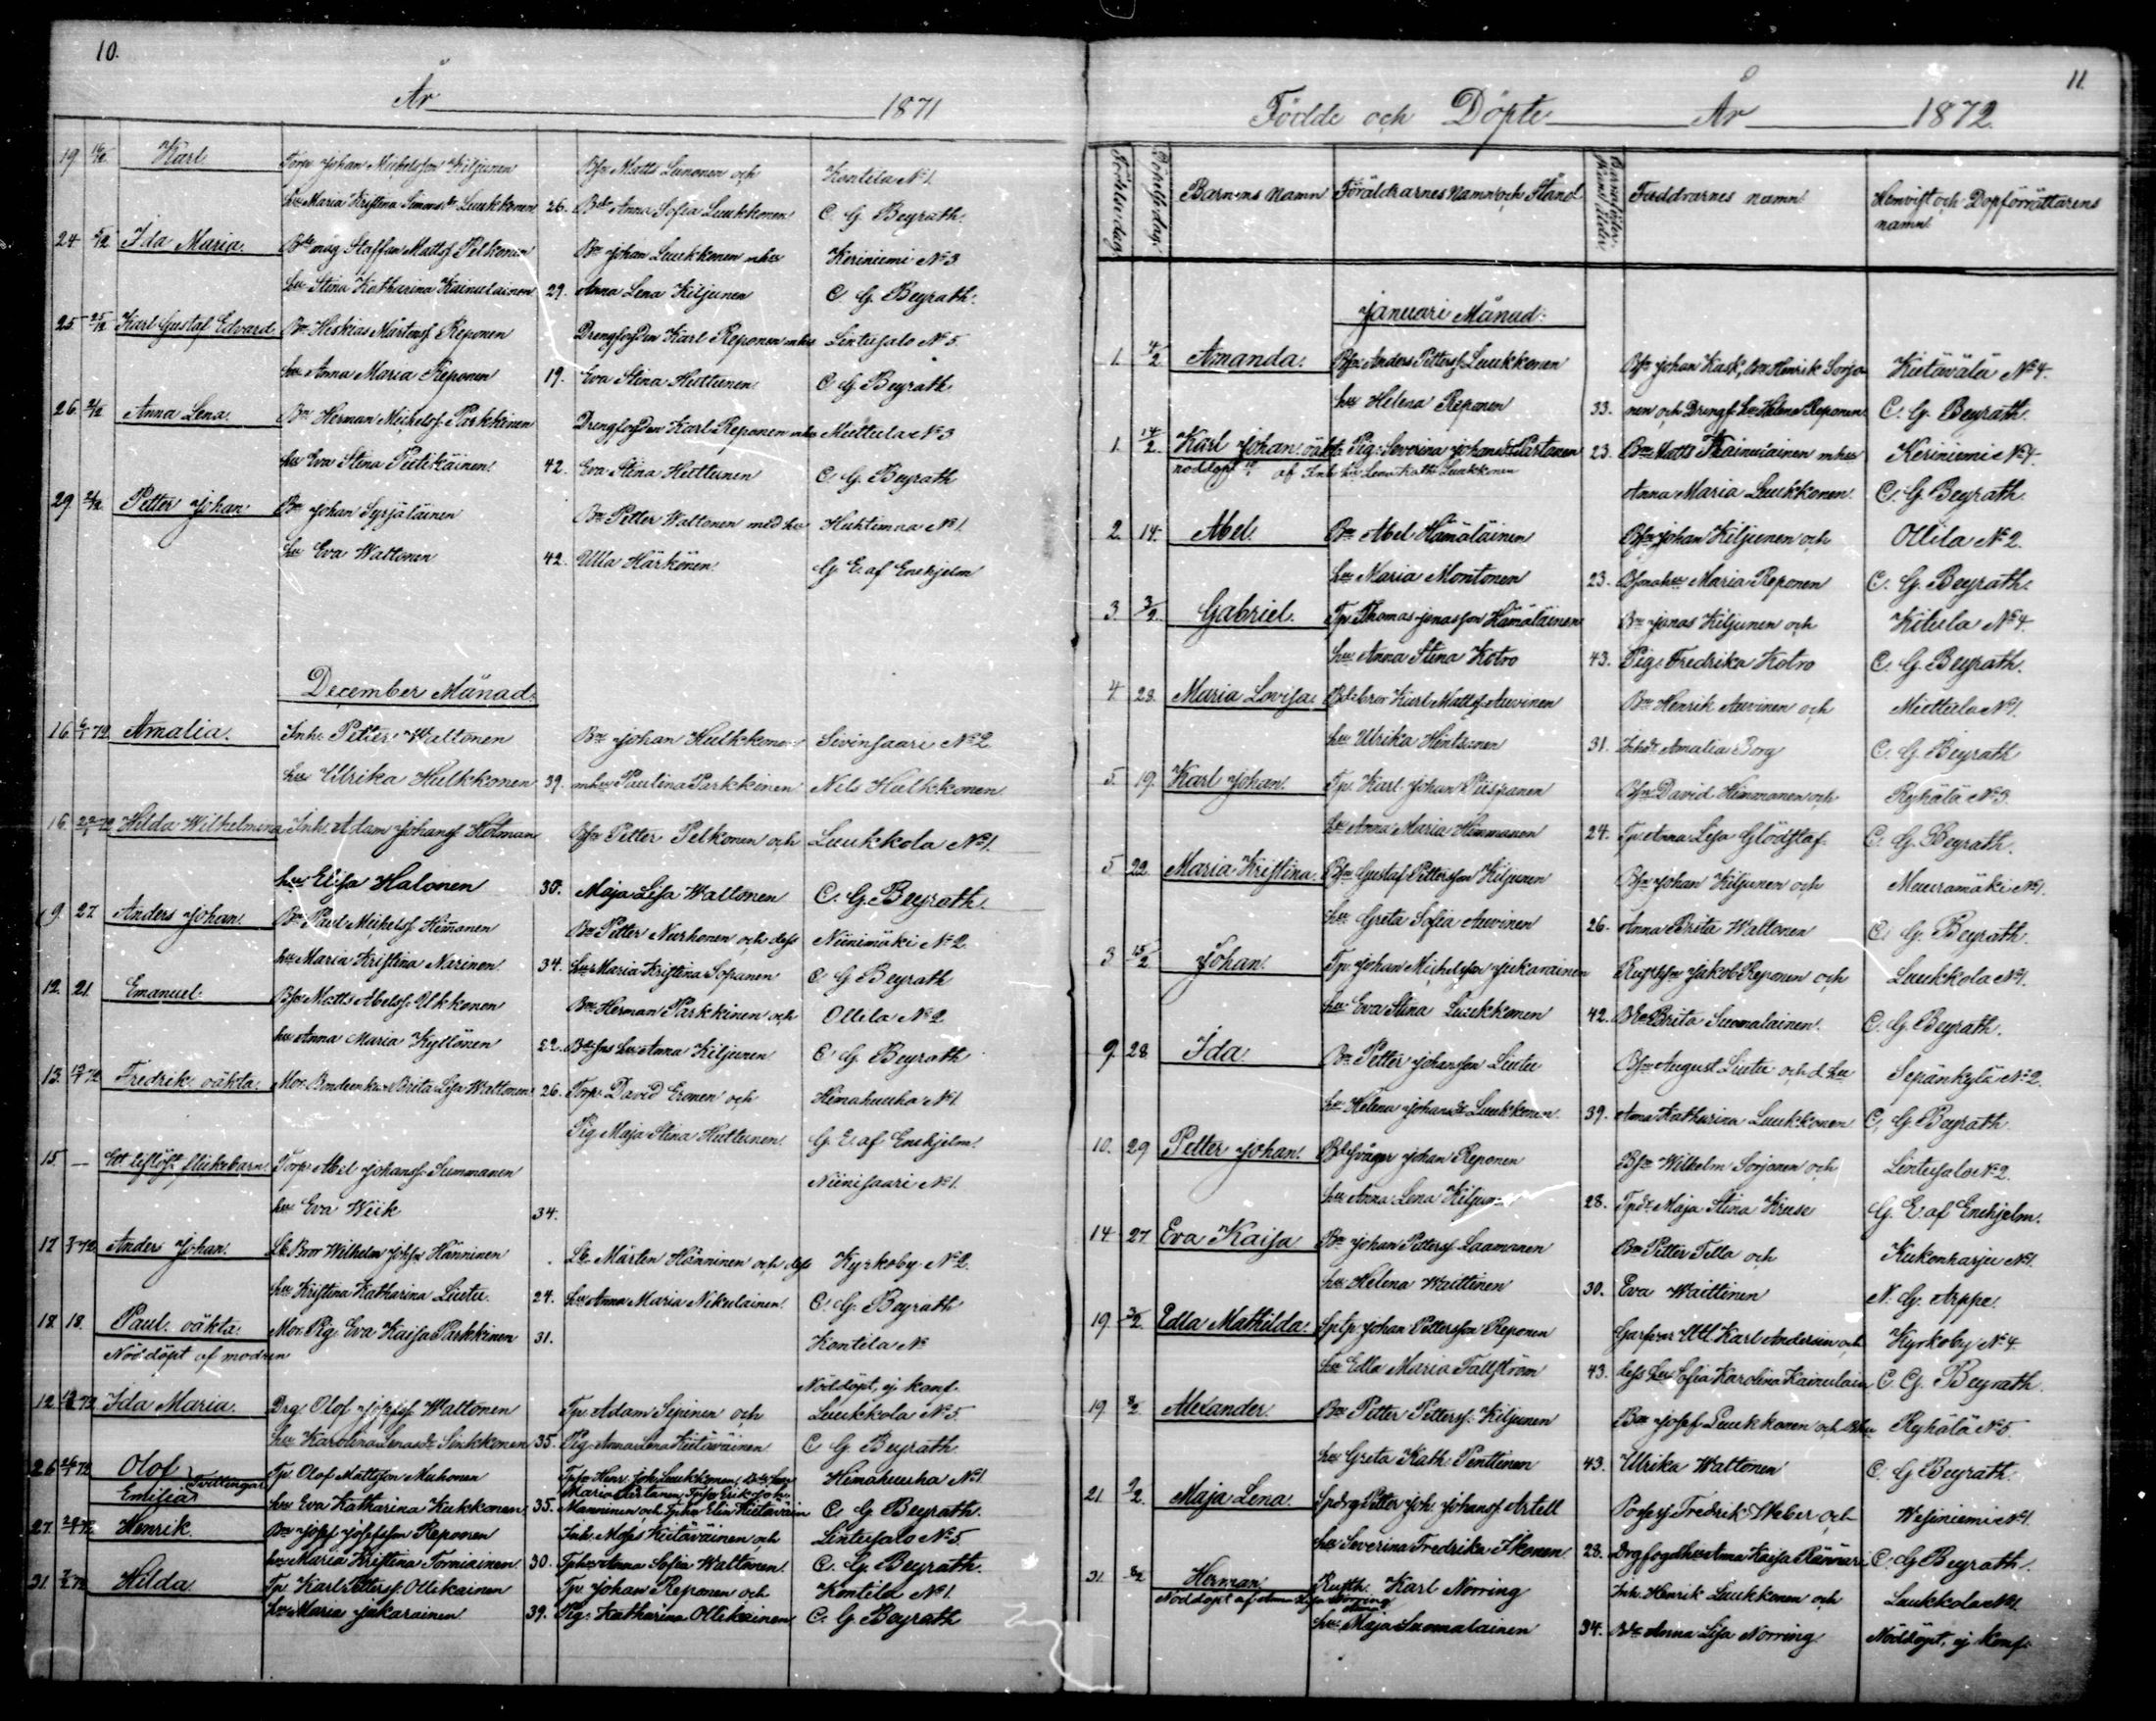 10.
År 1871
19. Karl Torp. Johan Michelsson Kiljunen Bsn Matts Lunonen och Kontila No 1.
hu Maria Kristina Simonsdr Luukkonen 26. Bdr Anna Sofia Luukkonen C. G. Beyrath.
24 5/12 Ida Maria. Bde måg Staffan Mattsf. Pelkonen Bn Johan Luukkonen mhu Keriniemi No 3
hu Stina Katharina Kainulainen 29. Anna Lena Kiljunen C. G. Beyrath.
25. 25/12 Karl Gustaf Edvard Bn Heskias Mårtensf. Reponen Drengfogden Karl Reponen mhu Lintusalo No 5.
hu Anna Maria Reponen 19. Eva Stina Huttunen C. G. Beyrath
26. 2/12 Anna Lena. Bn Herman Michelsf. Parkkinen Drengfogden Karl Reponen mhu Miettula No 3
hu Eva Stina Pietikäinen 42. Eva Stina Huttunen C. G. Beyrath
29. 2/12 Petter Johan Bn Johan Syrjäläinen Bn Petter Waltonen med hu Huhtimaa No 1.
hu Eva Waltonen 42. Ulla Härkönen G. E. af Enehjelm
December Månad.
16. 6/1 72 Amalia. Inh. Petter Waltonen Bn Johan Hulkkonen Sivinsaari No 2.
hu Ulrika Hulkkonen 39. mhu Paulina Parkkinen Nils Hulkkonen
16. Hilda Wilhelmina Inh. Adam Johansf. Holman Bsn Petter Pelkonen och Luukkola No 1.
hu Elisa Halonen 30. Maja Lisa Waltonen C. G. Beyrath.
9. 27. Anders Johan. Bn Paul Michelsf. Himanen Bn Petter Nurhonen och dess Niinimäki No 2.
hu Maria Kristina Narinen 34. hu Maria Kristina Sopanen C. G. Beyrath
12. 21. Emanuel. Bsn Matts Abelsf. Ukkonen Bn Herman Parkkinen och Ollila No 2
hu Anna Maria Kyllönen 22. hu Anna Kiljunen C. G. Beyrath
13. 13/1 72 Fredrik oäkta. Mor. Bondeenkan Brita Lisa Waltonen 26. Torp. David Eronen och Himahuuha No 1.
Pig. Maja Stina Huttunen. G. E. af Enehjelm.
15. — Ett liflöst flickebarn. Torp. Abel Johansf. Summanen Niinisaari No 1.
hu Eva Wiik 34.
17 Anders Johan. Lb. Bror Wilhelm Johsn Hänninen Lb. Mårten Hänninen och dess Kyrkoby No 2.
hu Kristina Katharina Liutu. 24. hu Anna Maria Nikulainen. C. G. Beyrath
18 18. Paul. oäkta. Mor. Pig. Eva Kaisa Parkkinen 31. Kontila No
Nöddöpt af modren Nöddöpt, ej konf.
12. Ida Maria. Drg. Olof Josefsf. Waltonen Tp. Adam Sepinen och Luukkola No 5.
hu Karolina Lenasdr Sinkkonen 35. Pig. Anna Lena Kiiäväinen C. G. Beyrath
26 Olof Tvillingar Tp. Olof Mattsson Muhonen Tpsn Henr. Joh. Luukkonen, Himahuuha No 1
Emilia hu Eva Katharina Kukkonen 35. Manninen och C. G. Beyrath.
27. Henrik. Bn Josef Josefsson Reponen Inh. Moses Kiiäväinen och Lintusalo No 5.
hu Maria Kristina Torniainen 30. Tphu Anna Sofia Waltonen. C. G. Beyrath.
31. Hilda. Tp. Karl Pettersf. Ollikainen Tp. Johan Reponen och Kontila No 1.
hu Maria Jukarainen 39. Pig. Katharina Ollikainen C. G. Beyrath
11.
Födde och Döpte År 1872.
Födelsedag. Döpelsedag. Barnens namn Föräldrarnes Namn och Stånd Faddrarnes namn. Hemvist och Dopförrättarens namn.
Januari Månad.
1. 4/2 Amanda. Bsn Anders Pettersf. Luukkonen Bsn Johan Kask, Bn Henrik Sorjo- Kiiävälä No 4.
hu Helena Reponen 33. nen och Drengf. hu Helena Reponen C. G. Beyrath.
1. 14/2 Karl Johan. oäkta Pig. Severina Johansdr Partanen 23. Bn Matts Kainulainen mhu Keriniemi No 4.
nöddöpt af Inh. hu Lena Kath. Luukkonen
Anna Maria Luukkonen. C. G. Beyrath.
2. 14. Abel. Bn Abel Hämäläinen Bsn Johan Kiljunen och Ollila No 2.
hu Maria Montonen 23. Bsonhu Maria Reponen C. G. Beyrath.
3. 3/2 Gabriel. Tp. Thomas Jonasson Hämäläinen Bn Jonas Kiljunen och Kitula No 4.
hu Anna Stina Kotro 43. Pig. Fredrika Kotro C. G. Beyrath.
4 28. Maria Lovisa. Bdebror Karl Mattsf. Auvinen Bn Henrik Auvinen och Miettula No 1.
hu Ulrika Hintsanen 31. Inhdr Amalia Borg C. G. Beyrath
5. 19. Karl Johan. Tp. Karl Johan Piispanen Bsn David Himmanen och Ryhälä No 3.
hu Anna Maria Himmanen 24. Tp. Anna Lisa Glödstaf C. G. Beyrath.
5 22. Maria Kristina. Bsn Gustaf Pettersson Kiljunen Bsn Johan Kiljunen och Muuramäki No 1.
hu Greta Sofia Auvinen 26. Anna Brita Waltonen C. G. Beyrath.
3 15/2 Johan. Tp. Johan Michelsson Jukarainen Rusthsn Jakob Reponen och Luukkola No 1.
hu Eva Stina Luukkonen 42. Brita Suomalainen. C. G. Beyrath.
9. 28 Ida Bn Petter Johansson Liutu Bsn August Liutu och d. hu Sepänkylä No 2.
hu Helena Johansdr Luukkonen 39. Anna Katharina Luukkonen C. G. Beyrath.
10. 29 Petter Johan. Bdesvåger Johan Reponen Bsn Wilhelm Sorjonen och Lintusalo No 2.
hu Anna Lena Kiljunen 28. Tpdr Maja Stina Kruse G. E. af Enehjelm.
14 27 Eva Kaisa Bn Johan Pettersf. Laamanen Bn Petter Tella och Kukonharju No 1.
hu Helena Waittinen 30. Eva Waittinen N. G. Arppe.
19 Edla Mathilda. Sptp. Johan Pettersson Reponen Garfvar Karl Andersin och Kyrkoby No 4
hu Edla Maria Tallström 43. dess hu Sofia Karolina Kainulain C. G. Beyrath.
19 8/2 Alexander. Bn Petter Pettersf. Kiljunen Bn Josef Luukkonen och Ryhälä No 5.
hu Greta Kath. Penttinen 43. Ulrika Waltonen C. G. Beyrath.
21. 9/2. Maja Lena. Spdrg. Petter Joh. Johansf. Artell Possess. Fredrik Weber och Wesiniemi No 1.
hu Severina Fredrika Ikonen. 28. Drgfogdhu Anna Kaisa Rännäri C. G. Beyrath.
31. 8/2 Herman Rusth. Karl Norring Inh. Henrik Luukkonen och Luukkola No 1.
Nöddöpt af Anna Lisa Norring
hu Maja Suomalainen 34. Bdr Anna Lisa Norring Nöddöpt, ej konf.